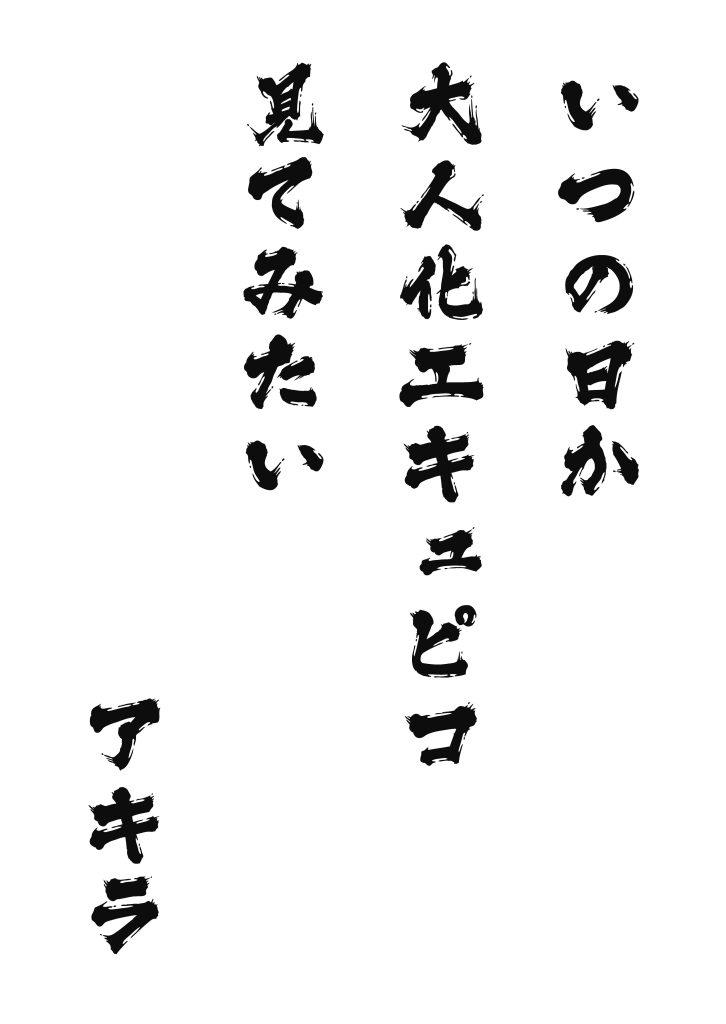 いつの日か
大人化エキュピコ
見てみたい
アキラ